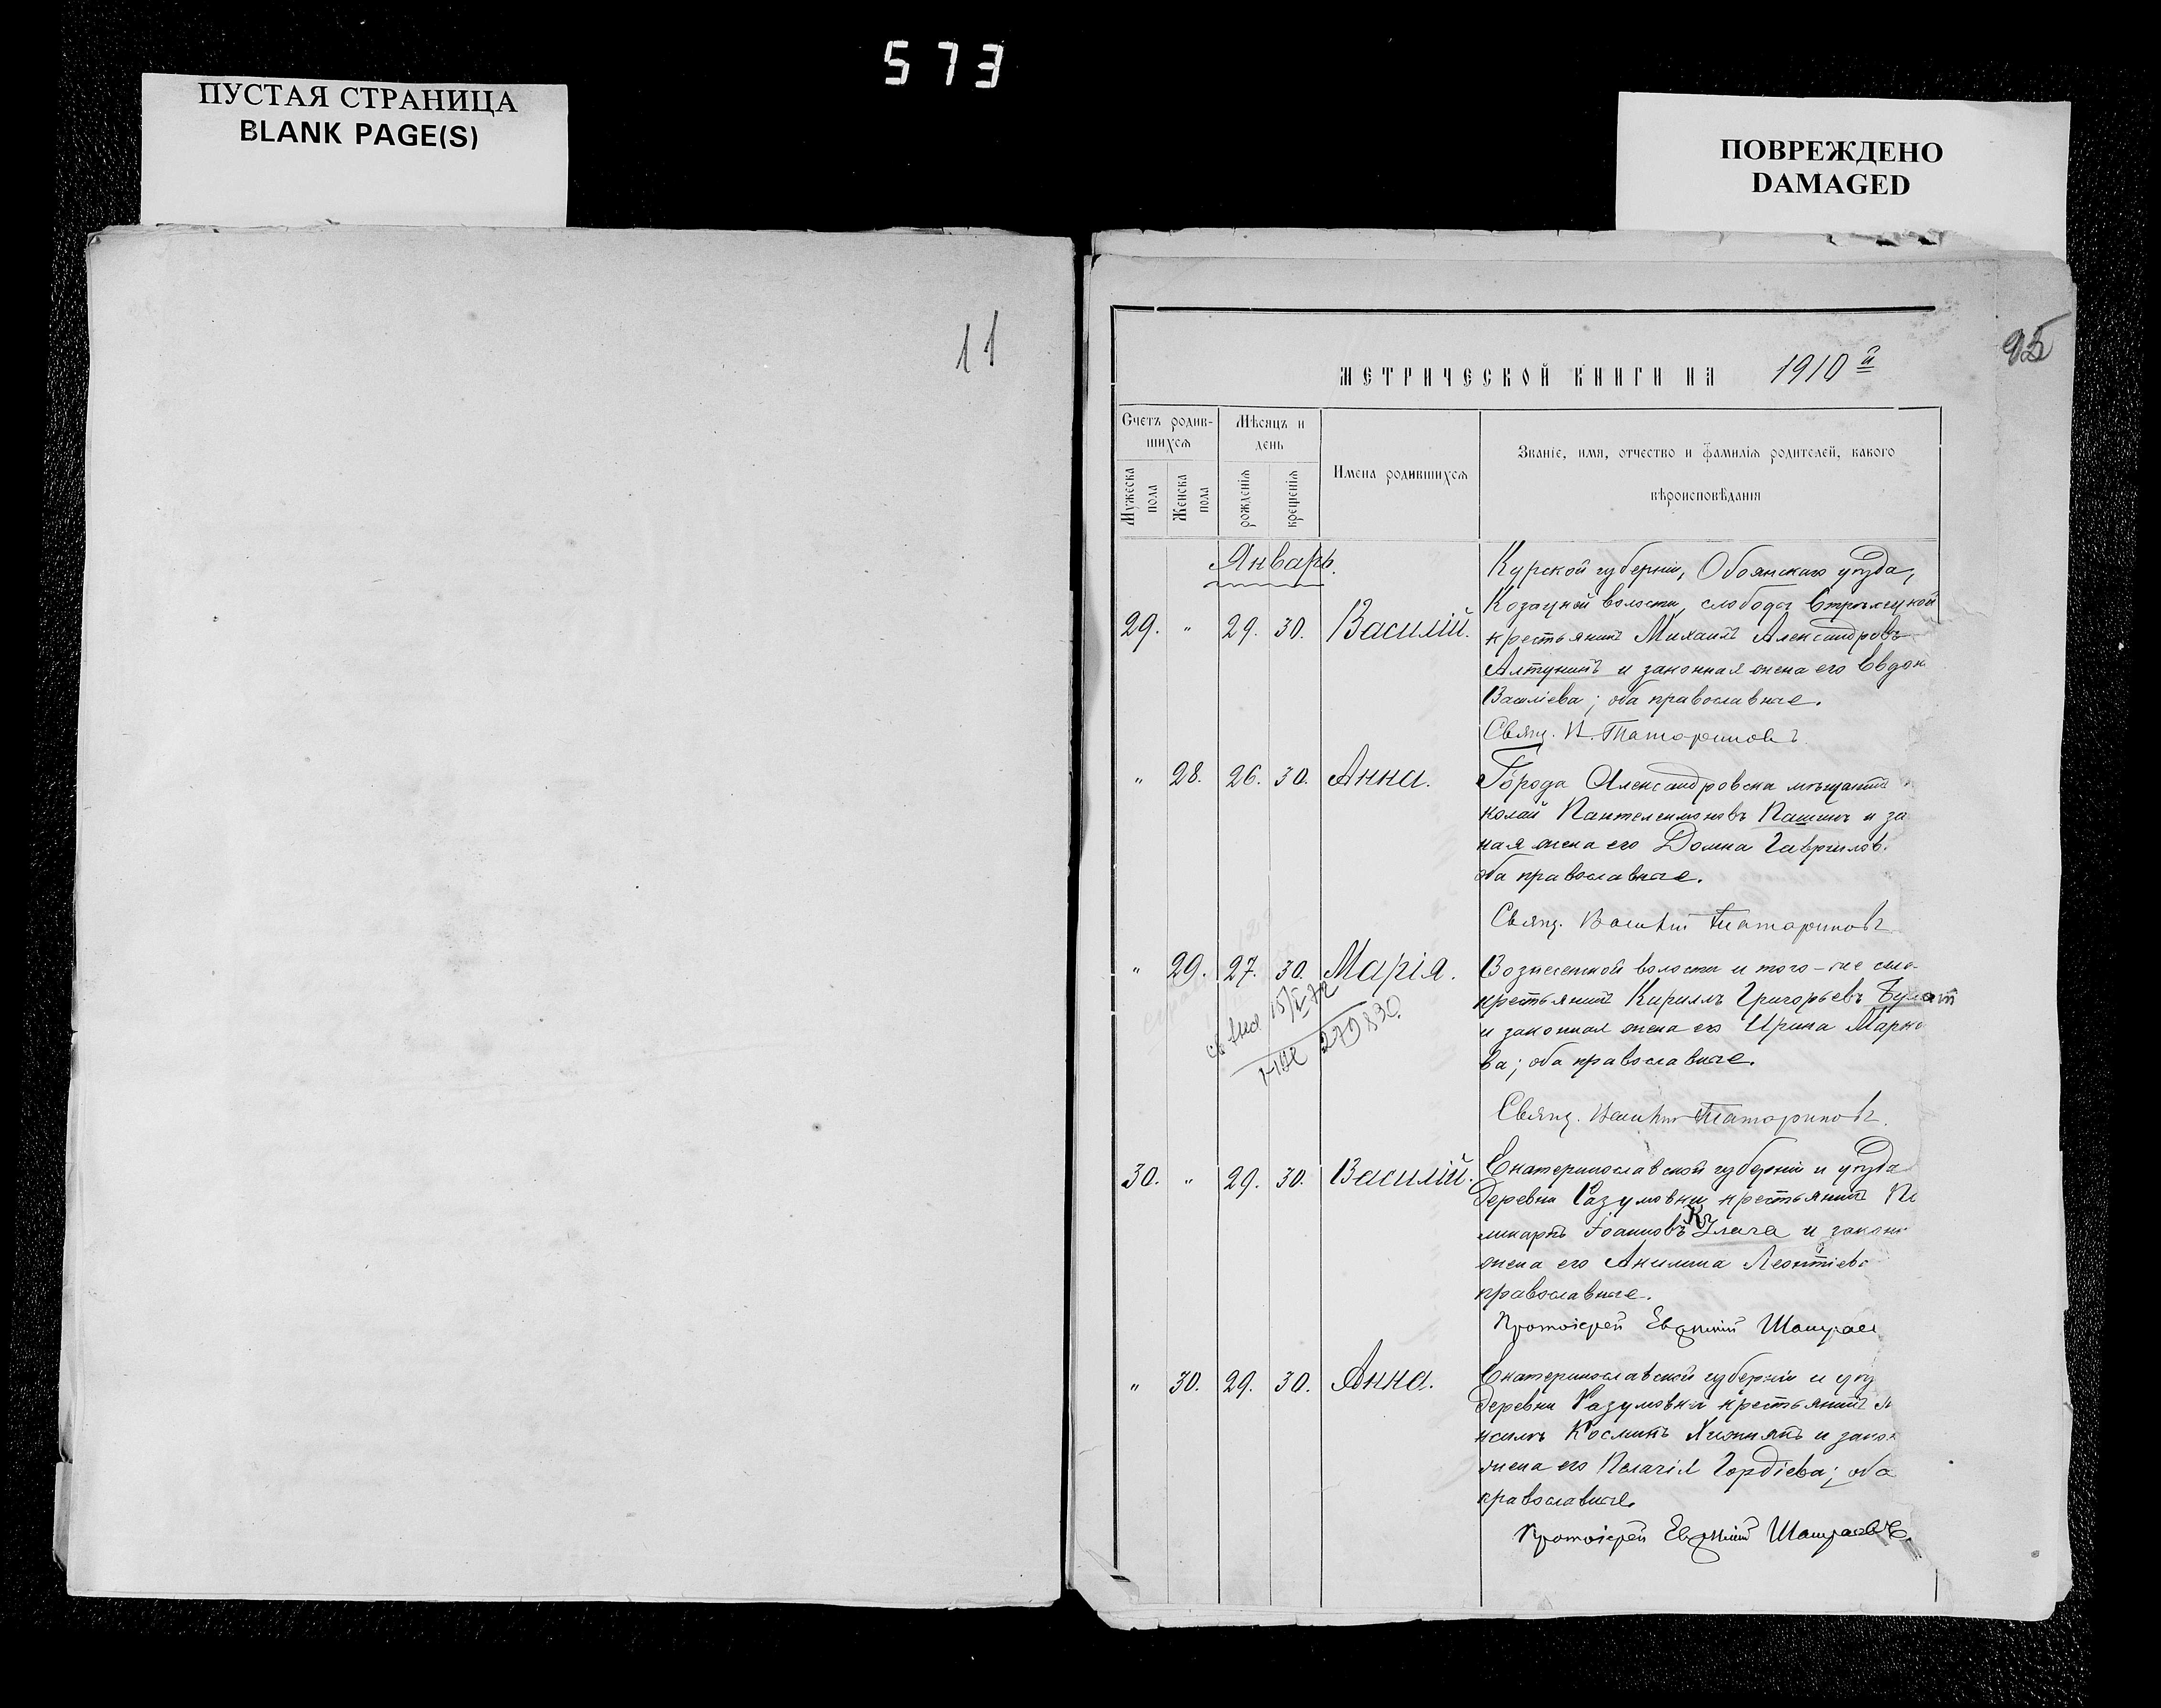 573
ПУСТАЯ СТРАНИЦА
BLANK PAGE(S)
ПОВРЕЖДЕНО
DAMAGED
11
95
МЕТРИЧЕСКОЙ КНИГИ НА 1910й
Счетъ родив-
шихся
Мѣсяцъ и
день
Имена родившихся
Званіе, имя, отчество и фамилія родителей, какого
вѣроисповѣданія
Мужеска
пола
Женска
пола
рожденія
крещенія
Январь.
29. " 29. 30. Василій.
Курской губерніи, Обоянскаго уѣзда,
Козацкой волости, слободы Стрѣлецкой
крестьянинъ Михаилъ Александровъ
Алтунинъ и законная жена его Евдок
Василіева; оба православные.
Свящ. В. Татариновъ.
" 28. 26. 30. Анна.
Города Александровска мѣщанинъ
колай Пантелеимоновъ Пашинъ и за
ная жена его Домна Гаврилов.
оба православные.
Свящ. Василій Татариновъ
" 29. 27. 30. Марія.
Вознесенской волости и того-же сел
крестьянинъ Кириллъ Григорьевъ Булат
и законная жена его Ирина Марко
ва; оба православные.
15/V 72
279830
Свящ. Василій Татариновъ.
30. " 29. 30. Василій.
Екатеринославской губерніи и уѣзда
деревни Разумовки крестьянинъ По
ликарпъ Іоанновъ и законн
жена его Акилина Леонтіева
православные.
Протоіерей Евфимій
" 30. 29. 30. Анна.
Екатеринославской губерніи и уѣз
деревни Разумовки крестьянинъ
Косминъ Хижнякъ и закон
жена его Пелагія Гордіева; оба
православные.
Протоіерей Евфимій